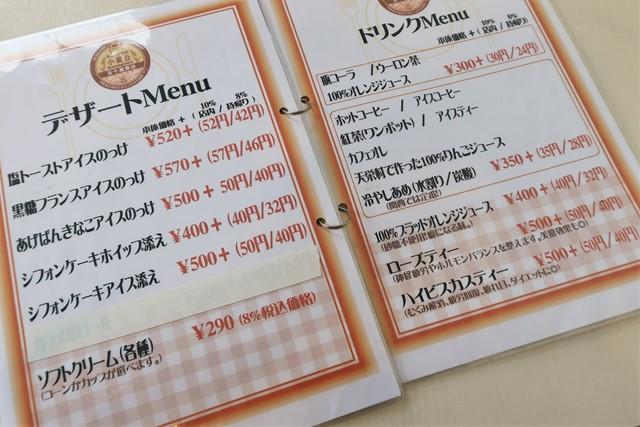 小麦庄
デザートMenu
10% 8%
本体価格 + (店内 / 持帰り)
塩トーストアイスのっけ ¥520+ (52円/42円)
黒糖フランスアイスのっけ ¥570+ (57円/46円)
あげぱんきなこアイスのっけ ¥500+ 50円/40円)
シフォンケーキホイップ添え ¥400+ (40円/32円)
シフォンケーキアイス添え ¥500+ (50円/40円)
ソフトクリーム(各種) ¥290 (8%税込価格)
(コーンかカップが選べます。)
ドリンクMenu
10% 8%
本体価格 + (店内 / 持帰り)
瓶コーラ /ウーロン茶
100%オレンジジュース ¥300+ (30円/24円)
ホットコーヒー / アイスコーヒー
紅茶(ワンポット) / アイスティー
カフェオレ
天栄村で作った100%りんごジュース
冷やしあめ(水割り/炭酸) ¥350+ (35円/28円)
(関西では定番!)
100%ブラッドオレンジジュース ¥400+ (40円/32円)
(砂糖不使用癖になる味。)
ローズティー ¥500+ (50円/40円)
(神経疲労やホルモンバランスを整えます。美徳効果も◎)
ハイビスカスティー ¥500+ (50円/40円)
(むくみ解消、疲労回復、疲れ目、ダイエットに◎)